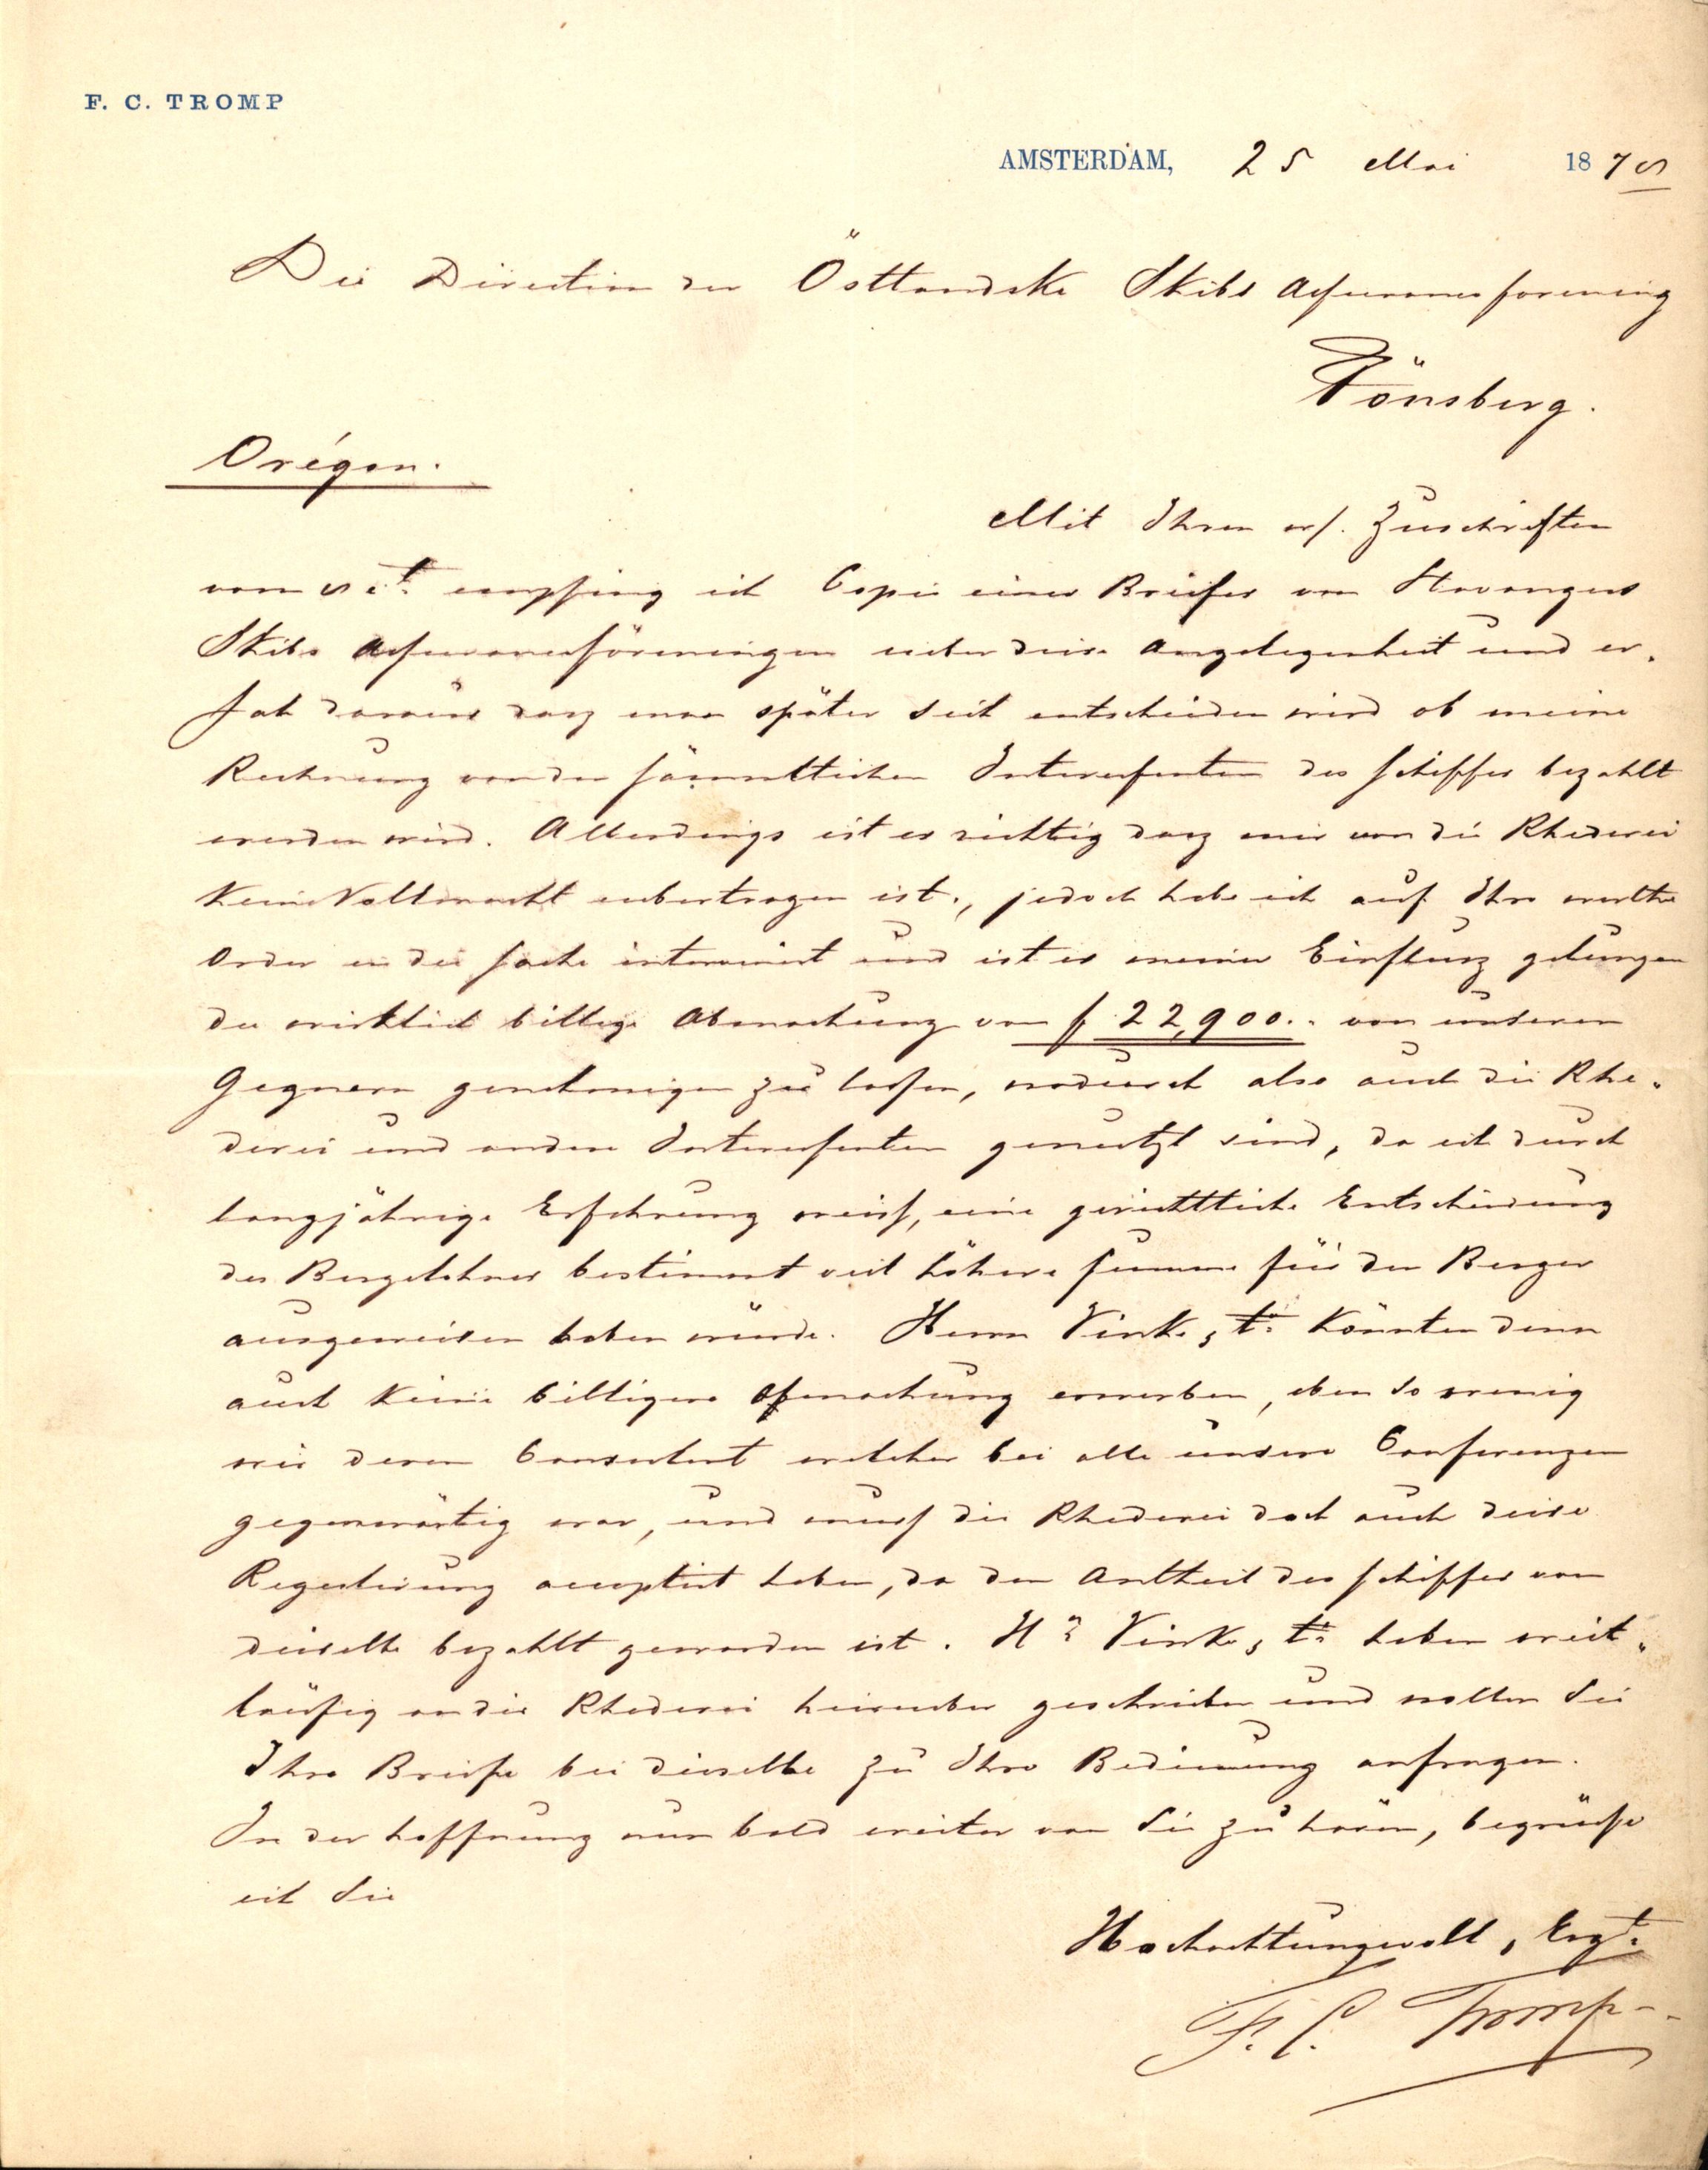 F. C. TROMP
AMSTERDAM, 25 Mai 1878
Die Direction der Östlandske Skibs Assuranceforening
Tönsberg.
Orégon.
Mit Ihren Zuschriften
vom 8 ct. empfing ich Copie eines Briefes von Stavangers
Skibs Assuranceföreningen ueber diese Angelegenheit und er-
sah daraus dasz man später seit entscheiden wird ob meine
Rechnung von den sämmtlichen Interessenten des Schiffes bezahlt
werden wird. Allerdings ist es richtig dasz mir von die Rhederei
keine Vollmacht uebertragen ist, jedoch habe ich auf Ihre werthe
Order in der Sache intervenirt und ist es meiner Einflusz gelungen
die wirklich billige Abmachung von f 22,900.- von unseren
Gegnern genehmigen zu lassen, wodurch also auch die Rhe-
derei und andere Interessenten genutzt sind, da ich durch
langjährige Erfahrung weiss, eine gerichtliche Entscheidung
des Bergelohnes bestimmt viel höhere Summe für den Berger
ausgewiesen haben würde. Herrn Vinke, & Co. könnten denn
auch keine billigere Abmachung erwerben, eben so wenig
wie deren Consulent welcher bei alle unsere Conferenzen
gegenwärtig war, und muss die Rhederei doch auch diese
Regulirung acceptirt haben, da den Antheil des Schiffes von
dieselbe bezahlt geworden ist. Hrn Vinke & Co. haben weit-
läufig an die Rhederei hierueber geschrieben und wollen Sie
Ihre Briefe bei dieselbe zu Ihre Bedienung anfragen.
In der Hoffnung nun bald weiter von Sie zu hören, begrüsse
ich Sie
Hochachtungsvoll, Ergt.
F. C. Tromp